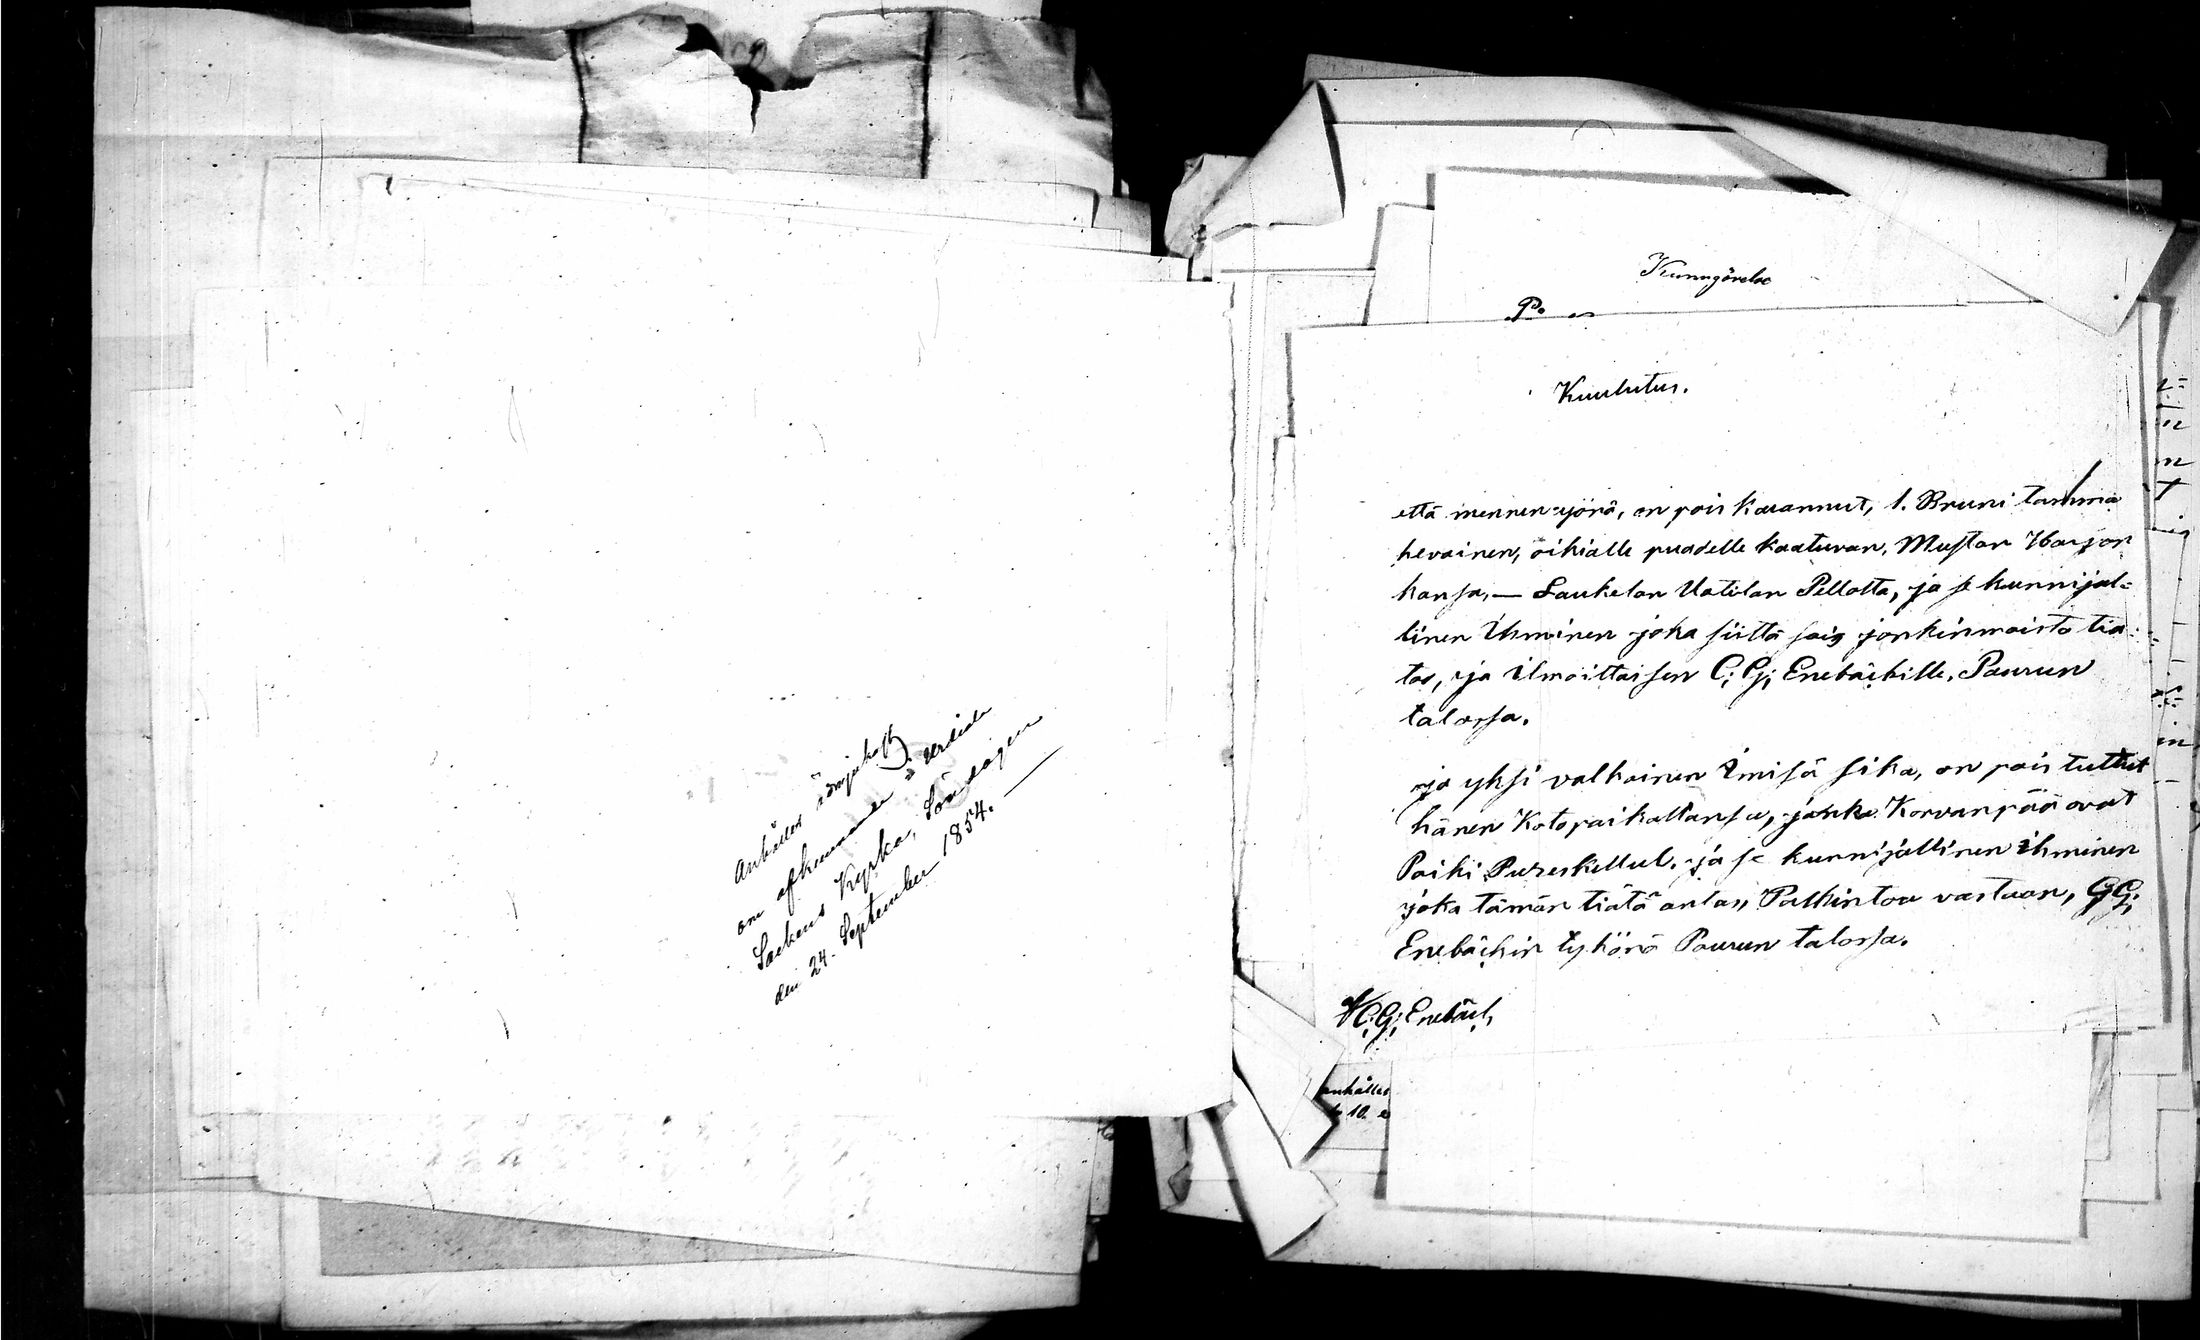 Anhålles ödmjukast
om afkunnande i Urdiala
Sockens Kyrka, Söndagen
den 24. September 1854. —
Kunngörelse
P.
Kuulutus.
että mennen yönä, on pois karannut, 1. Bruni tamma
hevoinen, oikialle puolelle kaatuvan, Mustan Harjan
kansa, — Laukelan Uotilan Pellolta, ja se kunnijal=
linen Ihminen joka siittä sais jonkinmoista tia=
toa, ja ilmoittaisen C; G; Enebäckille, Paurun
talossa.
ja yksi valkoinen Imisä sika, on pois tullut
hänen Kotopaikaltansa, jonka Korvanpää ovat
Poiki Pureskellut. ja se kunnijallinen ihminen
joka tämän tiätä antas, Palkintoa vastaan, C; G;
Enebäckin tykönä Paurun talossa.
C; G; Enebäck,
anhålles
10.